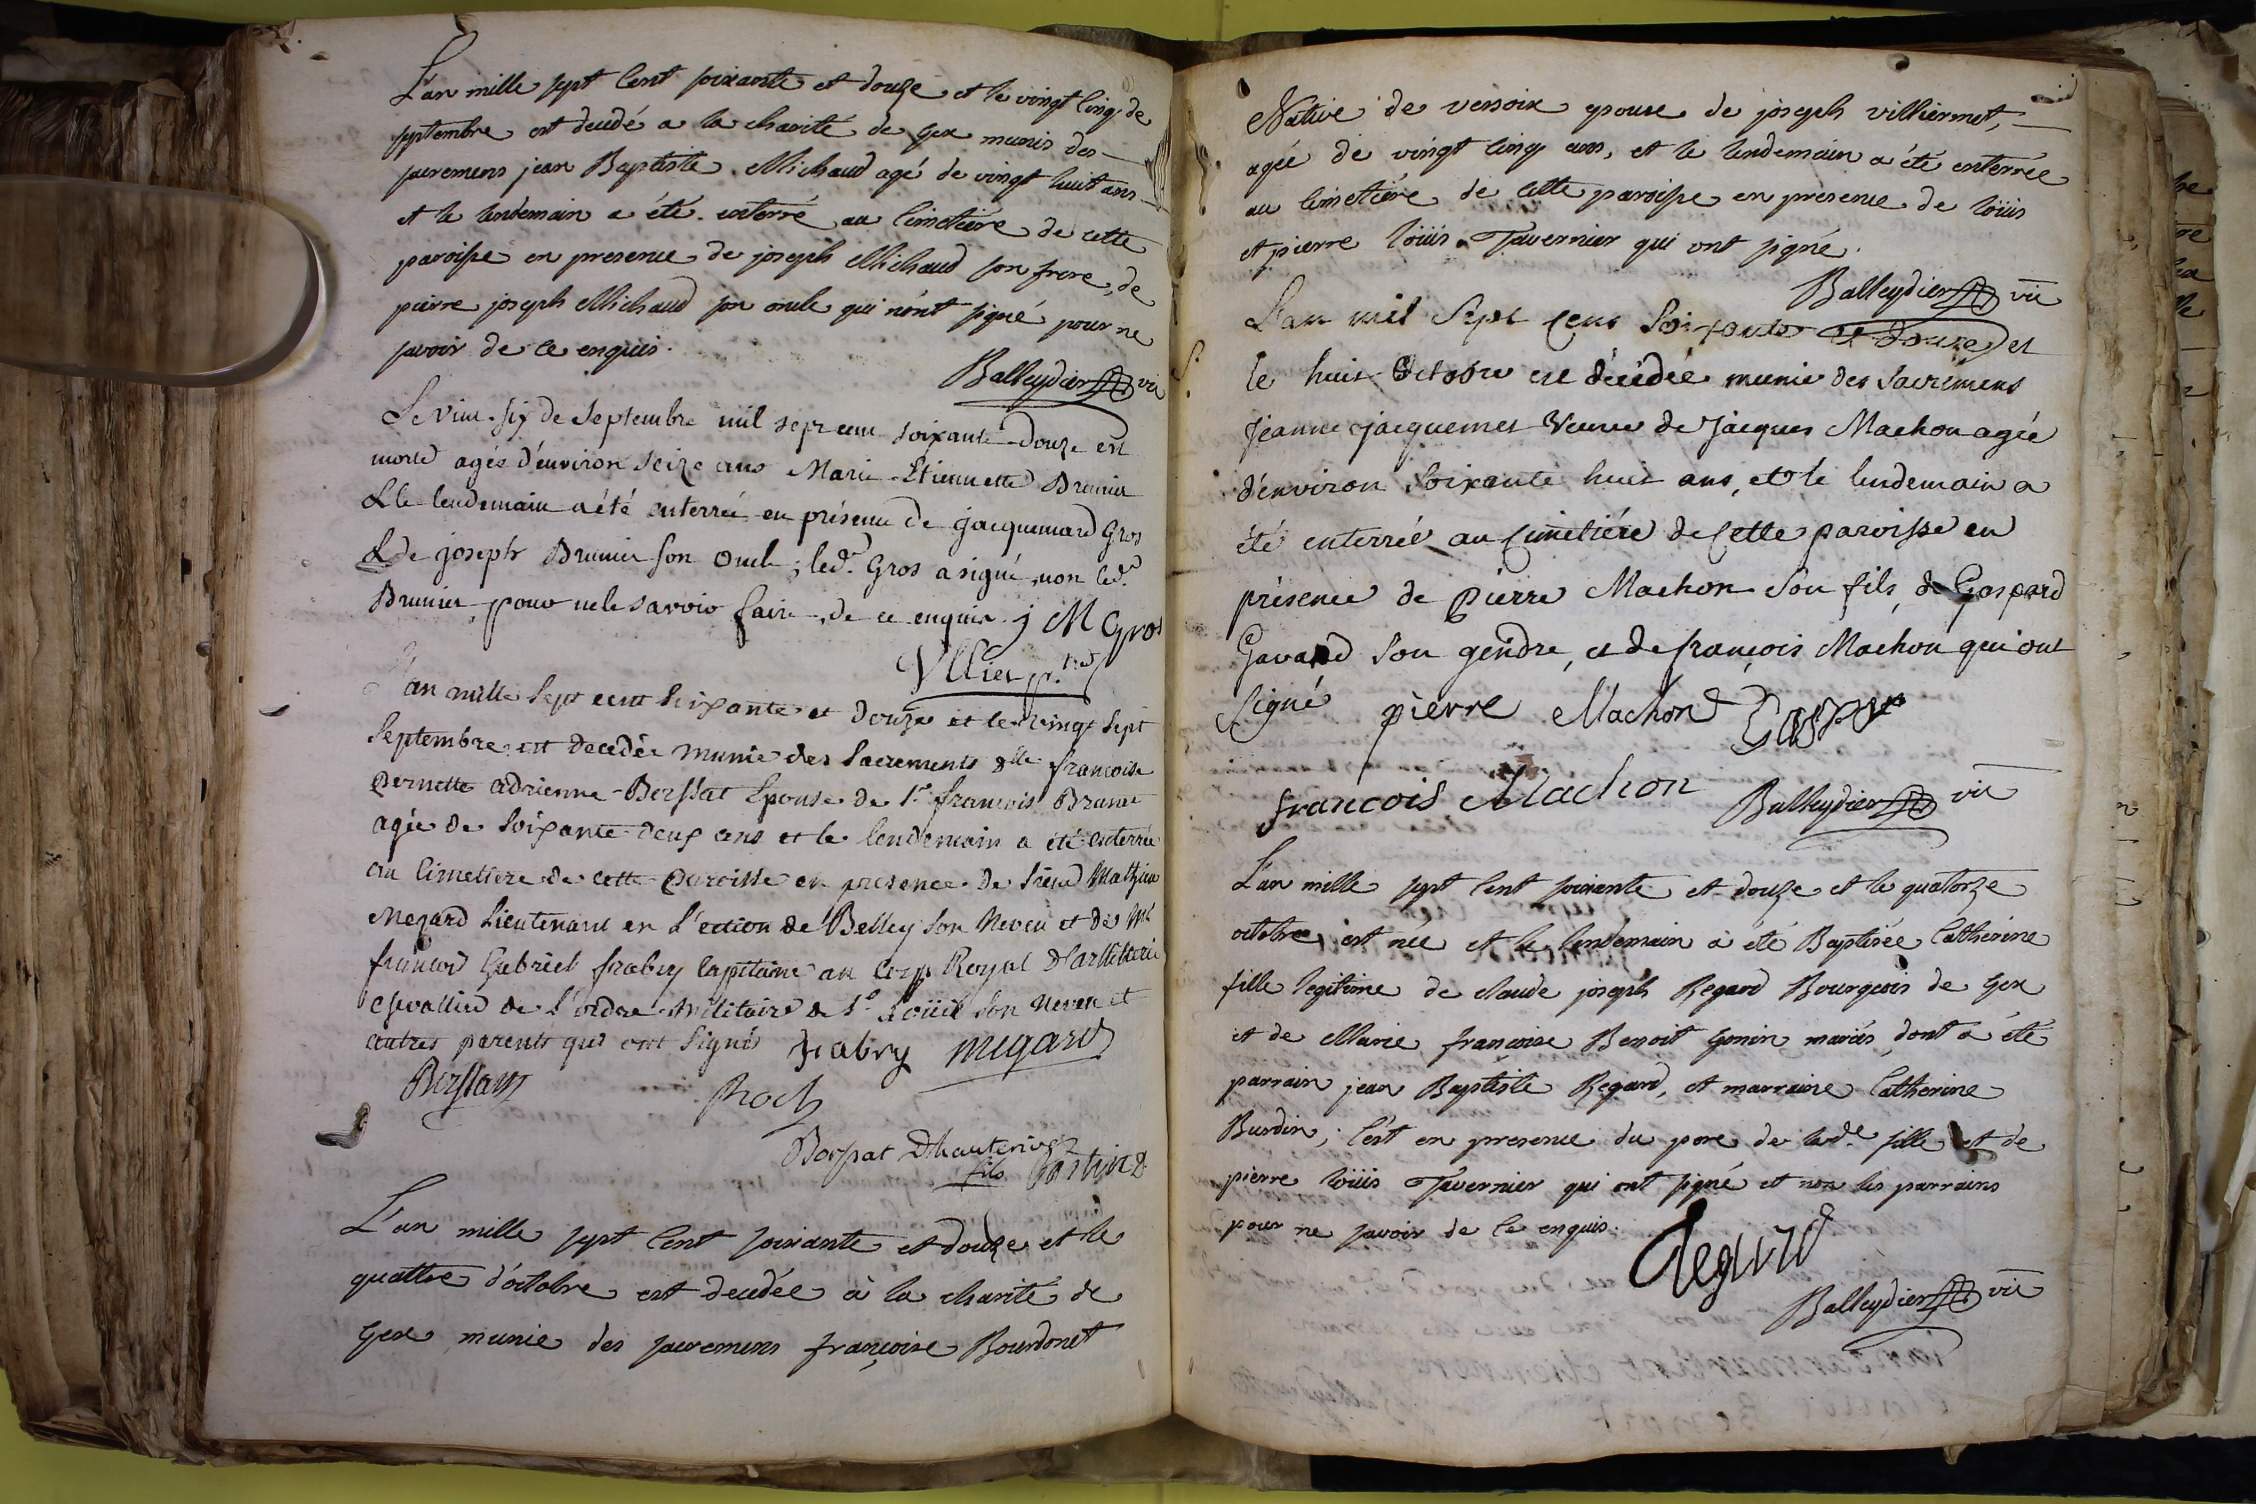 L'an mille sept cent soixante et douze et le vingt cinq de
septembre est decedé a la charité de Gex munis des
sacremens jean Baptiste Michaud agé de vingt huit ans
et le lendemain a été enterré au cimetière de cette
paroisse en presence de joseph Michaud son frere, de
pierre joseph Michaud son oncle qui n'ont signé pour ne
savoir de ce enquis.
Balleydier vic
Le vint-six de Septembre mil sept cent soixante-douze est
morte agée d'environ seize ans Marie-Etiennette Brunier
& le lendemain a été enterrée en présence de jacquemard Gros
& de joseph Brunier son oncle; led.t Gros a signé, non led.t
Brunier pour ne le savoir faire, de ce enquis. j M Gros
L'an mille Sept cent soixante et Douze et le vingt Sept
Septembre est decedée munie des Sacrements dlle francoise
Pernette adrienne Borssat Epouse de Sr. francois Brunet
agée de soixante deux ans et le lendemain a été enterrée
au Cimetiere de cette paroisse en presence de Sieur Mathieu
Megard Lieutenant en L'ection de Belley son Neveu et de Mr
francois Gabriel frabry Capitaine au Corp Royal D'artillerie
Chevallier de L'ordre Militaire de St. Loüis son Neveu et
autres parents qui ont signés fabry megard
Borssat Roch
Borssat Dhauterive
fils
L'an mille sept cent soixante et douze et le
quattre d'octobre est decedée à la charité de
Gex munie des sacremens françoise Bourdonet
Native de versoix epouse de joseph villiermet,
agée de vingt cinq ans, et le lendemain a été enterrée
au cimetière de cette paroisse en presence de loüis
et pierre loüis Tavernier qui ont signé.
Balleydier vic
L'an mil Sept cens Soixante et douze et
le huit Octobre est décédée munie des Sacrémens
Jeanne jacquemet Veuve de Jacques Machon agée
d'environ soixante huit ans, et le lendemain a
été enterrée au Cimetiére de Cette paroisse en
présence de Pierre Machon son fils, de Gaspard
Gavard son gendre, et de françois Machon qui ont
Signé pierre Machon
francois Machon Balleydier vic
L'an mille sept cent soixante et douze et le quatorze
octobre est née et le lendemain a été Baptisée Catherine
fille legitime de claude joseph Regard Bourgeois de Gex
et de Marie françoise Benoit Gonin mariés, dont a été
parrain jean Baptiste Regard, et marraine Catherine
Burdin; c'est en presence du pere de lad.e fille et de
pierre loüis Tavernier qui ont signé et non les parrains
pour ne savoir de ce enquis.
Regard
Balleydier vic